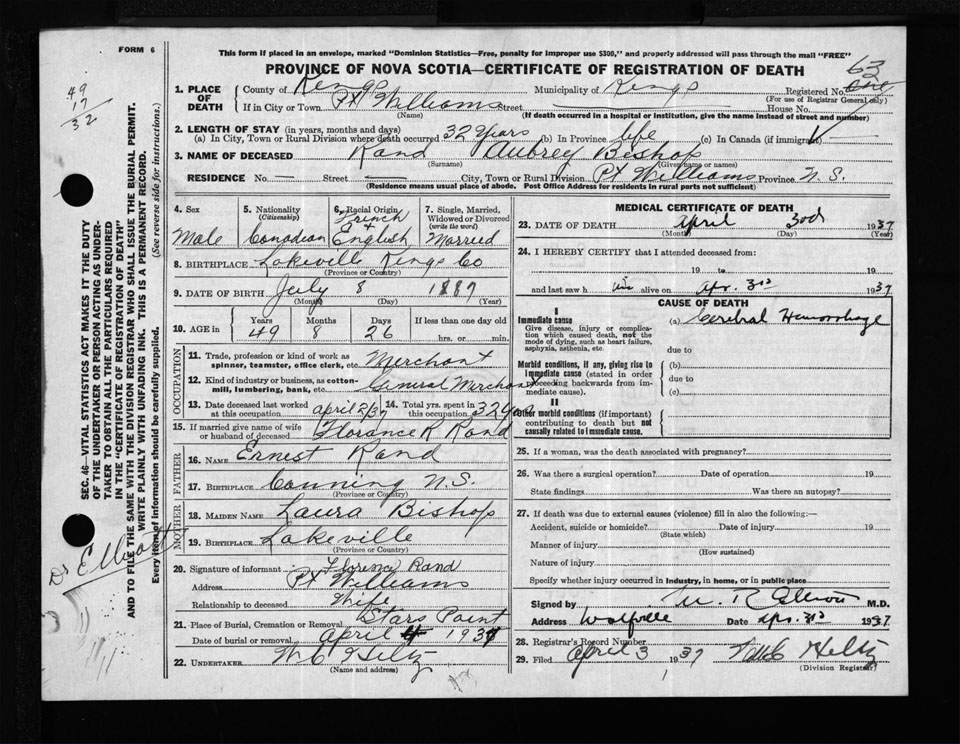 FORM 6
This form if placed in an envelope, marked "Dominion Statistics—Free, penalty for improper use $300," and properly addressed will pass through the mail "FREE"
PROVINCE OF NOVA SCOTIA—CERTIFICATE OF REGISTRATION OF DEATH
49
17
32
63
1. PLACE OF DEATH County of Kings Municipality of Kings Registered No.
(For use of Registrar General only)
If in City or Town Pt Williams Street House No.
(Name) (If death occurred in a hospital or institution, give the name instead of street and number)
2. LENGTH OF STAY (in years, months and days)
(a) In City, Town or Rural Division where death occurred 32 Years (b) In Province life (c) In Canada (if immigrant)
3. NAME OF DECEASED Rand Aubrey Bishop
(Surname) (Given name or names)
RESIDENCE No. — Street — City, Town or Rural Division Pt Williams Province N. S.
(Residence means usual place of abode. Post Office Address for residents in rural parts not sufficient)
4. Sex Male
5. Nationality (Citizenship) Canadian
6. Racial Origin French + English
7. Single, Married, Widowed or Divorced (write the word) Married
8. BIRTHPLACE Lakeville Kings Co
(Province or Country)
9. DATE OF BIRTH July 8 1887
(Month) (Day) (Year)
10. AGE in Years Months Days If less than one day old
49 8 26 hrs. or min.
OCCUPATION
11. Trade, profession or kind of work as spinner, teamster, office clerk, etc. Merchant
12. Kind of industry or business, as cotton-mill, lumbering, bank, etc. General Merchant
13. Date deceased last worked at this occupation april 2/37 14. Total yrs. spent in this occupation 32 Years
15. If married give name of wife or husband of deceased Florence R Rand
FATHER
16. NAME Ernest Rand
17. BIRTHPLACE Canning N.S.
(Province or Country)
MOTHER
18. MAIDEN NAME Laura Bishop
19. BIRTHPLACE Lakeville
(Province or Country)
20. Signature of informant Florence Rand
Address Pt Williams
Relationship to deceased Wife
21. Place of Burial, Cremation or Removal Stars Point
Date of burial or removal april 4 1937
22. UNDERTAKER W C Hiltz
(Name and address)
MEDICAL CERTIFICATE OF DEATH
23. DATE OF DEATH April 3rd 1937
(Month) (Day) (Year)
24. I HEREBY CERTIFY that I attended deceased from:
19 to 19
and last saw h im alive on Apr. 3rd 1937
CAUSE OF DEATH
I
Immediate cause (a) Cerebral Hemorrhage
Give disease, injury or complication which caused death, not the mode of dying, such as heart failure, asphyxia, asthenia, etc.
due to
Morbid conditions, if any, giving rise to immediate cause (stated in order proceeding backwards from immediate cause).
(b)
due to
(c)
II
Other morbid conditions (if important) contributing to death but not causally related to immediate cause.
25. If a woman, was the death associated with pregnancy?
26. Was there a surgical operation? Date of operation 19
State findings Was there an autopsy?
27. If death was due to external causes (violence) fill in also the following:—
Accident, suicide or homicide? Date of injury 19
(State which)
Manner of injury
(How sustained)
Nature of injury
Specify whether injury occurred in industry, in home, or in public place
Signed by M.D.
Address Wolfville Date Apr. 3rd 1937
28. Registrar's Record Number
29. Filed April 3 1937 Hiltz
(Division Registrar)
SEC. 46—VITAL STATISTICS ACT MAKES IT THE DUTY
OF THE UNDERTAKER OR PERSON ACTING AS UNDER-
TAKER TO OBTAIN ALL THE PARTICULARS REQUIRED
IN THE "CERTIFICATE OF REGISTRATION OF DEATH"
AND TO FILE THE SAME WITH THE DIVISION REGISTRAR WHO SHALL ISSUE THE BURIAL PERMIT.
WRITE PLAINLY WITH UNFADING INK. THIS IS A PERMANENT RECORD.
Every item of information should be carefully supplied. (See reverse side for instructions.)
Dr Elliott